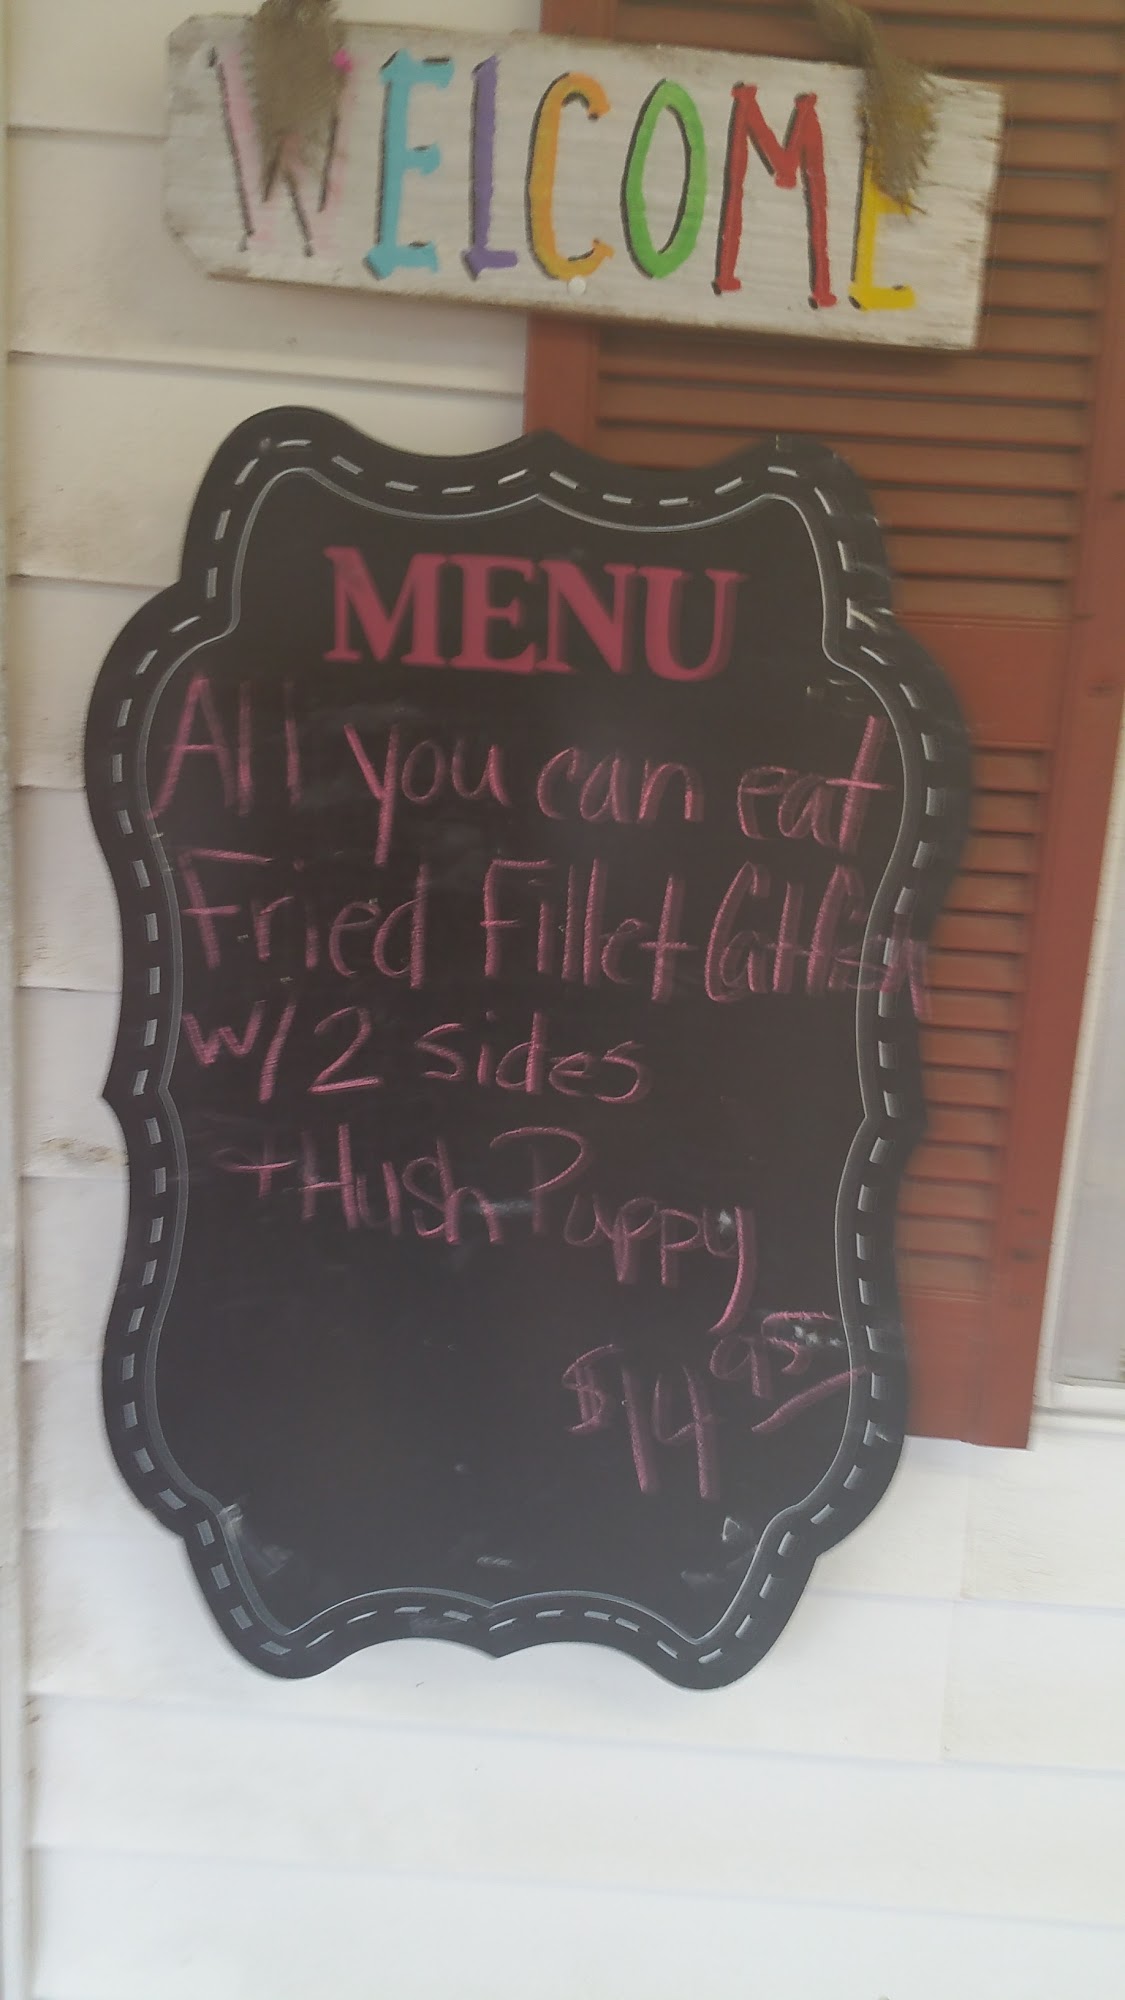 WELCOME
MENU
All you can eat
Fried Fillet Catfish
w/ 2 sides
+ Hush Puppy
$14 95